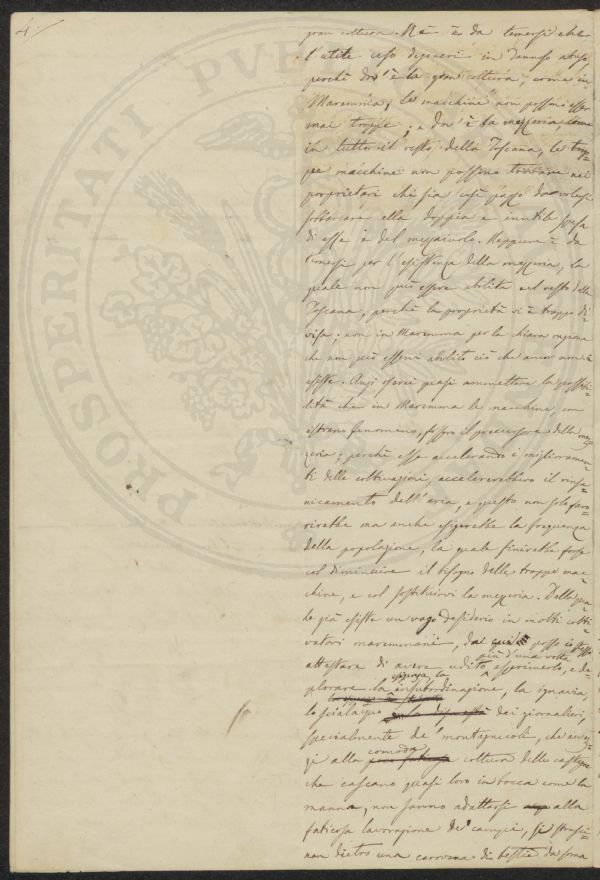 4.
gran coltura. Nè è da temersi che
l'utile uso degeneri in dannoso abuso,
perchè dov'è la gran coltura, come in
Maremma, le macchine non possono esser
mai troppe; e dov'è la mezzeria, come
in tutto il resto della Toscana, le trop=
pe macchine non possono trovare nei
proprietari chi sia così pazzo da volersi
sobbarcare alla doppia e inutile spesa
di esse e del mezzaiuolo. Neppure è da
temersi per l'esistenza della mezzeria, la
quale non può essere abolita nel resto della
Toscana, perchè la proprietà vi è troppo di=
visa; non in Maremma per la chiara ragione
che non può esservi abolito ciò che ancor non vi
esiste. Anzi oserei quasi ammettere la possibi=
lità che in Maremma le macchine, con
istrano fenomeno, fossero il precursore della mez=
zeria; perchè esse accelerando i miglioramen=
ti delle coltivazioni, accelererebbero il risa=
nicamento dell'aria, e questo non solo favo=
rirebbe ma anche esigerebbe la frequenza
della popolazione, la quale finirebbe forse
col diminuire il bisogno delle troppe mac=
chine, e col sostituirvi la mezzeria. Della qua=
le già esiste un vago desiderio in molti colti=
vatori maremmani, dai quali posso io stesso
attestare di avere udito più d'una volta esprimerlo, e de=
plorare la insubordinazione, la ignavia,
lo scialacquo dei giornalieri,
specialmente de' montagnuoli, che avvez=
zi alla comoda coltura delle castagne
che cascano quasi loro in bocca come la
manna, non sanno adattarsi alla
faticosa lavorazione de' campi, si strasci=
nan dietro una carovana di bestie da soma
PROSPERITATI PVB